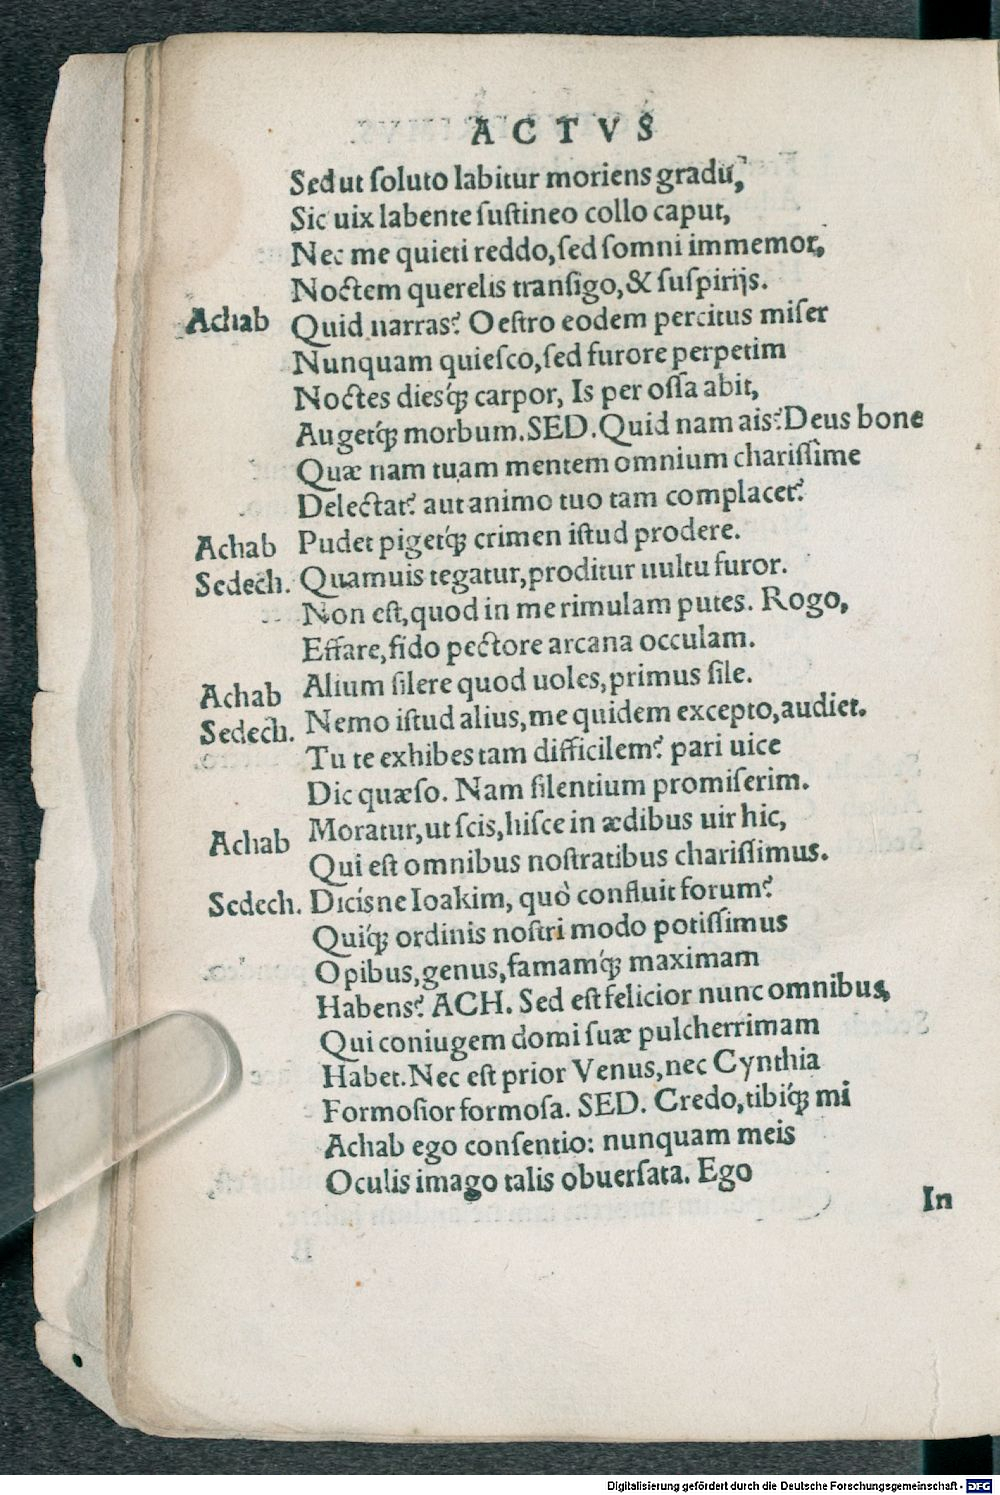 ACTVS
Sed ut ſoluto labitur moriens gradu,
Sic uix labente ſuſtineo collo caput,
Nec me quieti reddo, ſed ſomni immemor,
Noctem querelis tranſigo, & ſuſpirijs.
Achab Quid narras? Oeſtro eodem percitus miſer
Nunquam quieſco, ſed furore perpetim
Noctes diesq́; carpor, Is per oſſa abit,
Augetq́; morbum. SED. Quid nam ais? Deus bone
Quæ nam tuam mentem omnium chariſſime
Delectat? aut animo tuo tam complacet?
Achab Pudet pigetq́; crimen iſtud prodere.
Sedech. Quamuis tegatur, proditur uultu furor.
Non eſt, quod in me rimulam putes. Rogo,
Effare, fido pectore arcana occulam.
Achab Alium ſilere quod uoles, primus ſile.
Sedech. Nemo iſtud alius, me quidem excepto, audiet.
Tu te exhibes tam difficilem? pari uice
Dic quæſo. Nam ſilentium promiſerim.
Achab Moratur, ut ſcis, hiſce in ædibus uir hic,
Qui eſt omnibus noſtratibus chariſſimus.
Sedech. Dicisne Ioakim, quò confluit forum?
Quiq́; ordinis noſtri modo potiſſimus
Opibus, genus, famamq́; maximam
Habens? ACH. Sed eſt felicior nunc omnibus,
Qui coniugem domi ſuæ pulcherrimam
Habet. Nec eſt prior Venus, nec Cynthia
Formoſior formoſa. SED. Credo, tibiq́; mi
Achab ego conſentio: nunquam meis
Oculis imago talis obuerſata. Ego
In
Digitalisierung gefördert durch die Deutsche Forschungsgemeinschaft - DFG